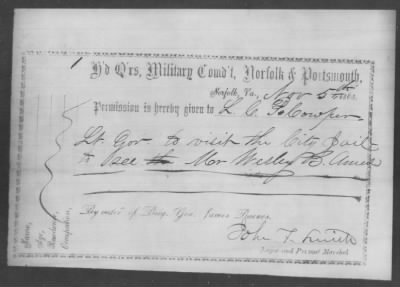 H'd Q'rs, Military Comd't, Norfolk & Portsmouth,
Norfolk, Va., Nov 5th 186
Permission is hereby given to L. C. P. Cowper
Lt. Gov. to visit the City Jail
to see Mr Willey B.
By order of Brig. Gen. James
John T. Smith
Major and Provost Marshal
Name,
Age,
Residence,
Occupation,